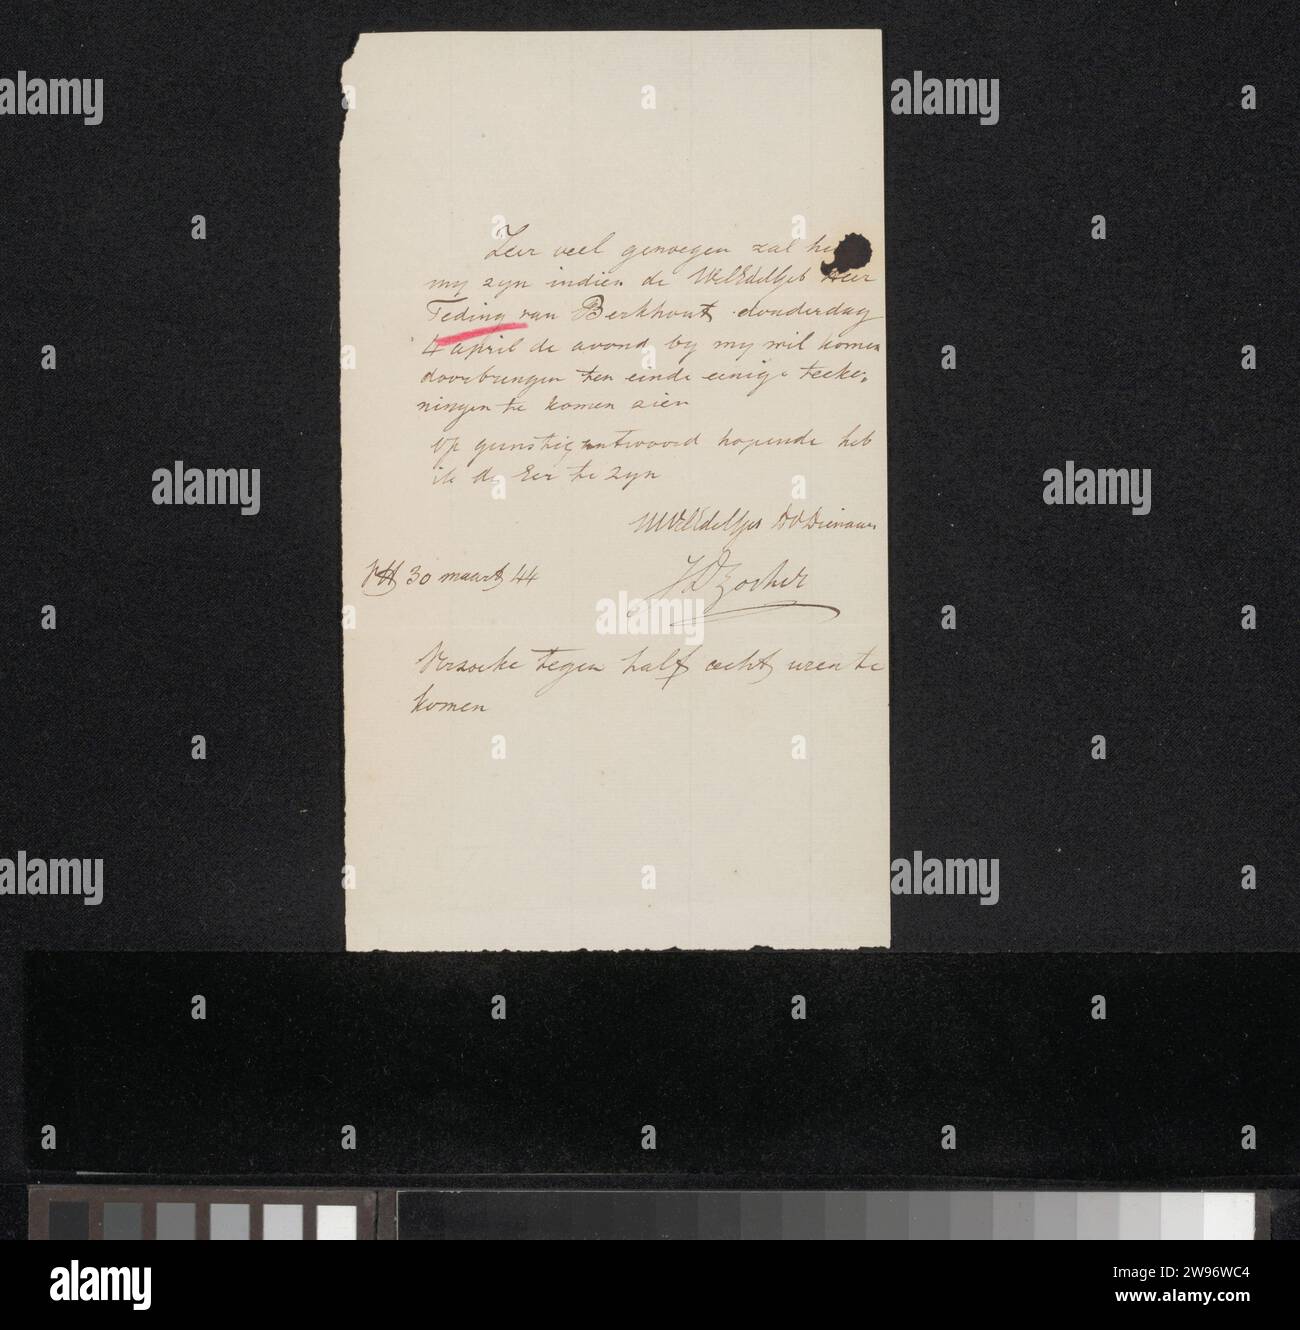 Zeer veel genoegen zal he
my zyn indien de WelEdelGeb Heer
Teding van Berkhout donderdag
4 april de avond by my wil komen
doorbrengen ten einde eenige teeke.
ningen te komen zien
Op gunstig antwoord hopende heb
ik de Eer te zyn
UWelEdelGeb DVDienaar
30 maart 44
JD Zocher
Verzoeke tegen half acht uren te
komen
alamy
Image ID: 2W96WC4
www.alamy.com